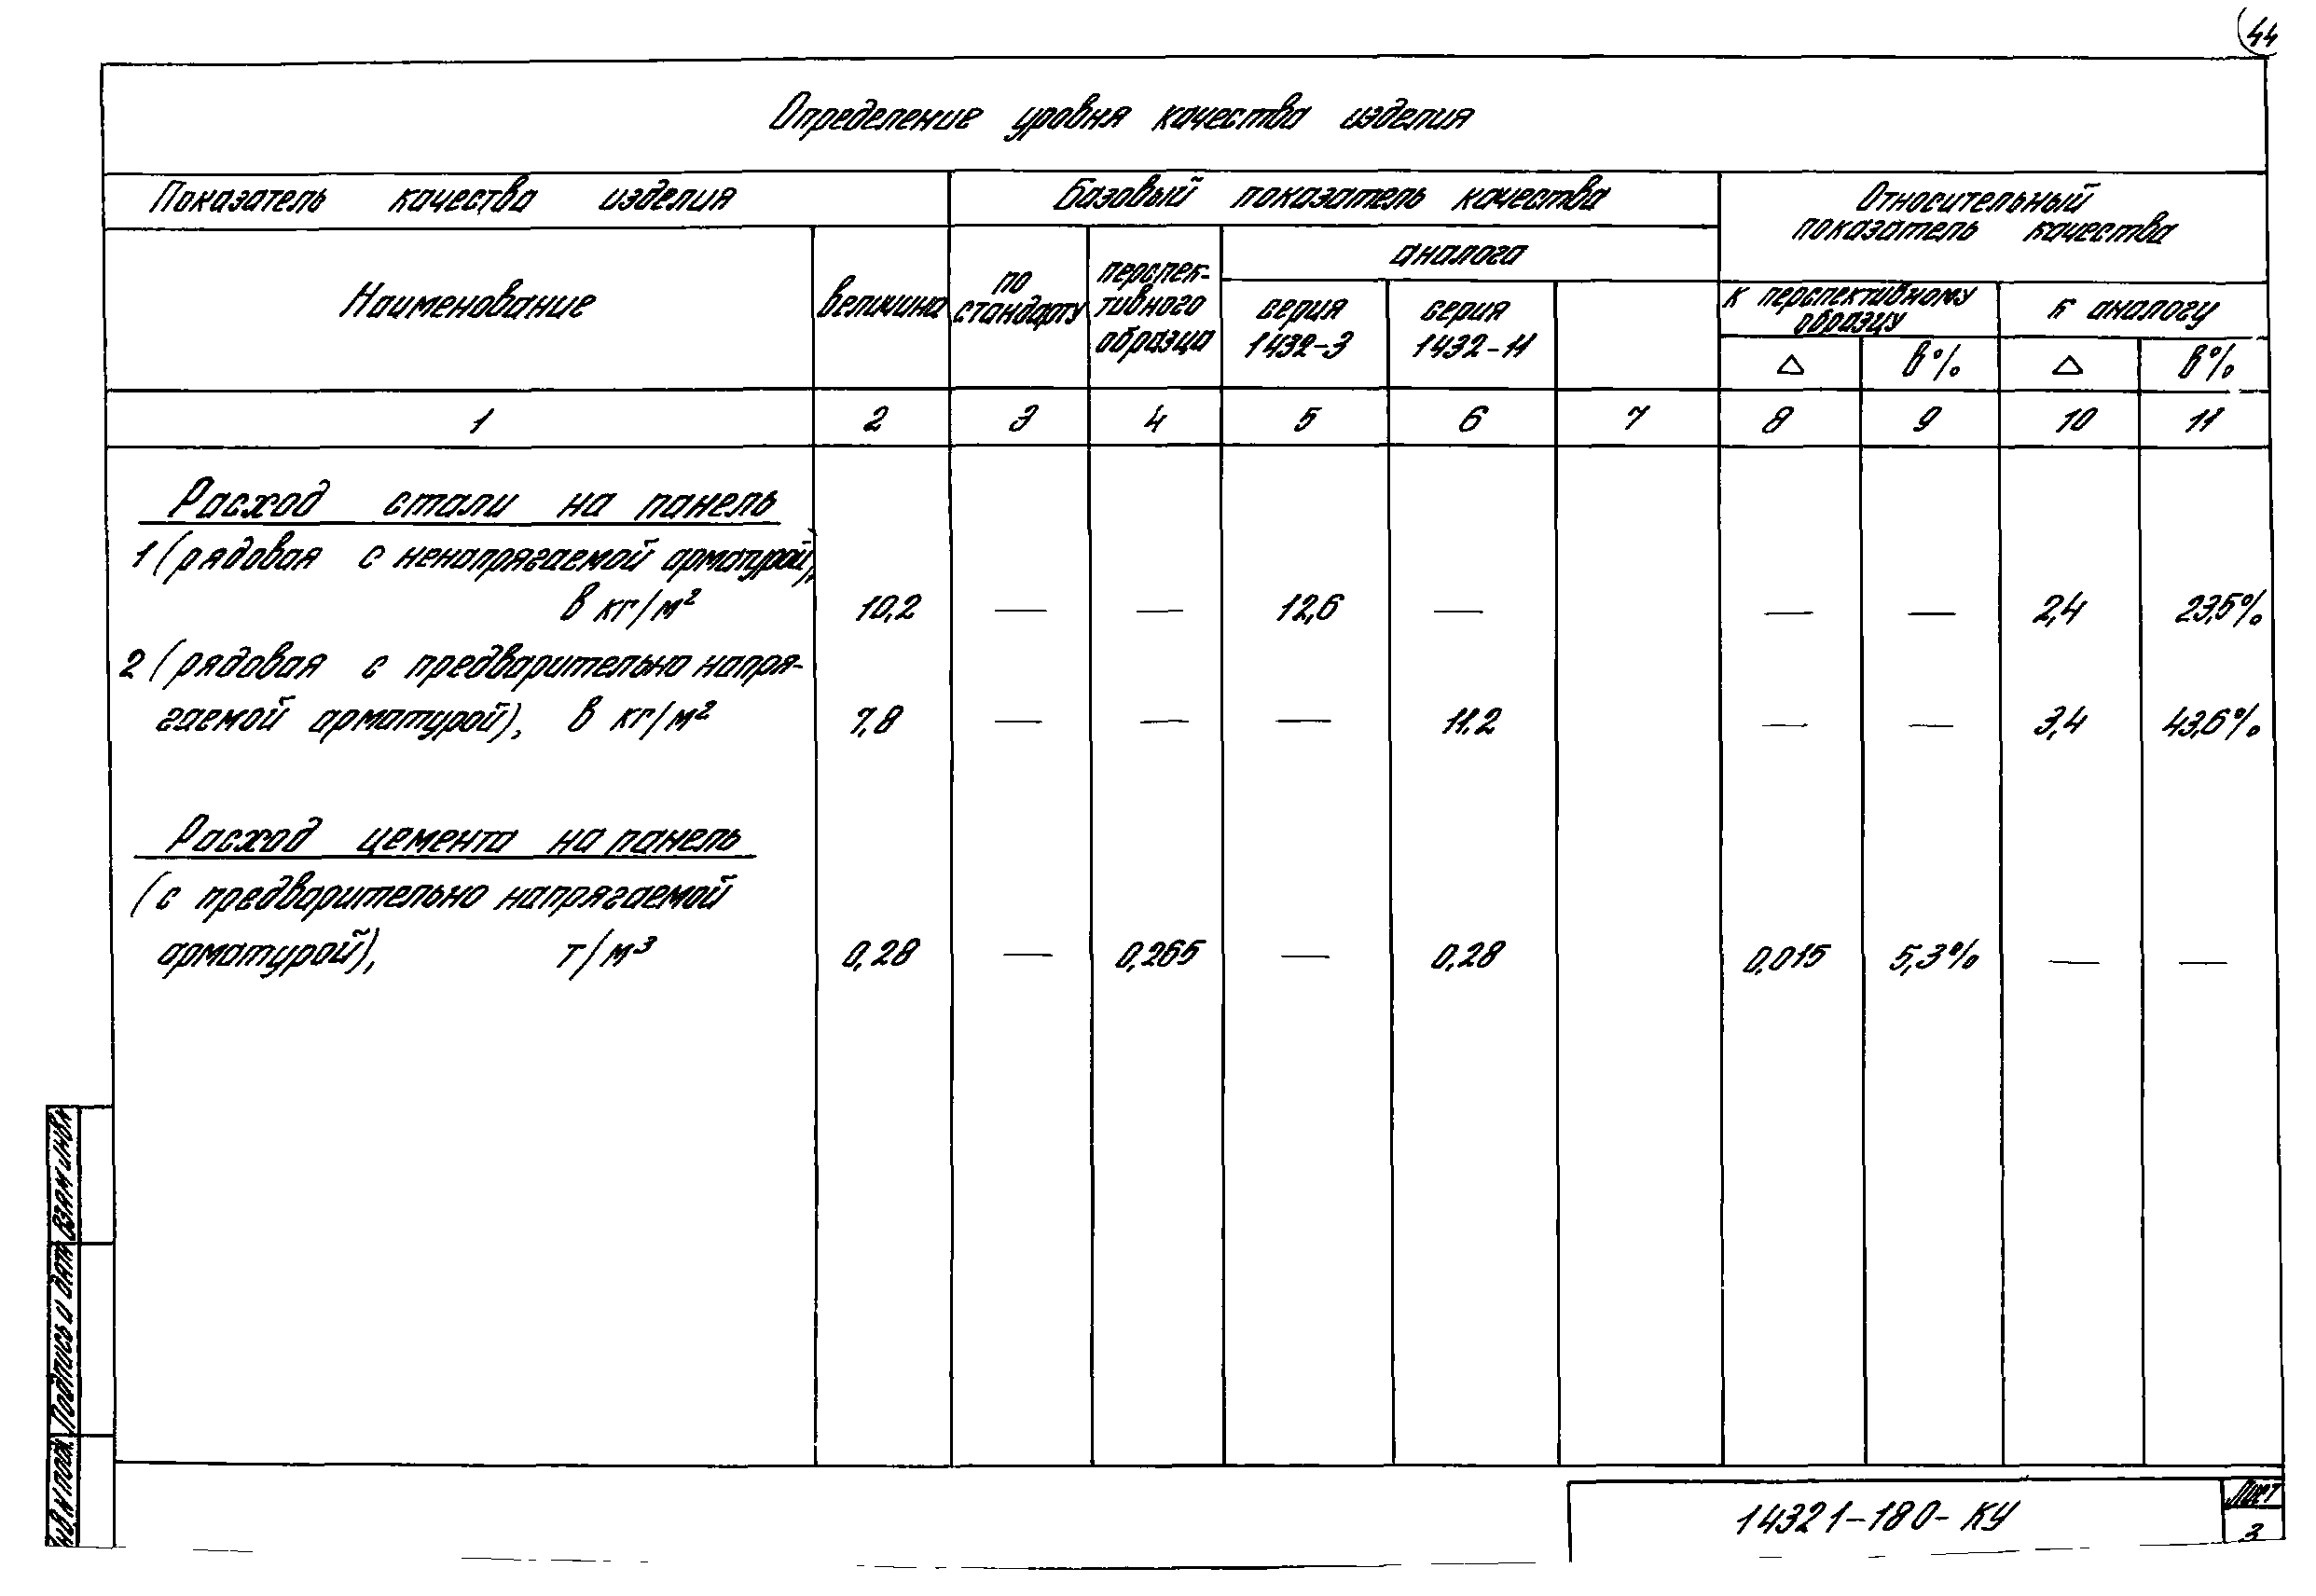 44
Определение уровня качества изделия
Показатель качества изделия
Базовый показатель качества
Относительный
показатель качества
Наименование
величина
по
стандарту
перспек-
тивного
образца
аналога
серия
1432-3
серия
1432-11
к перспективному
образцу
к аналогу
△ в% △ в%
1 2 3 4 5 6 7 8 9 10 11
Расход стали на панель
1 (рядовая с ненапрягаемой арматурой),
в кг/м² 10,2 — — 12,6 — — — 2,4 23,5%
2 (рядовая с предварительно напря-
гаемой арматурой), в кг/м² 7,8 — — — 11.2 — — 3,4 43,6%
Расход цемента на панель
(с предварительно напрягаемой
арматурой), т/м³ 0,28 — 0,265 — 0,28 0,015 5,3% — —
Взам инв.н
Подпись и дата
Инв.N подл.
14321-180-КУ
Лист
3